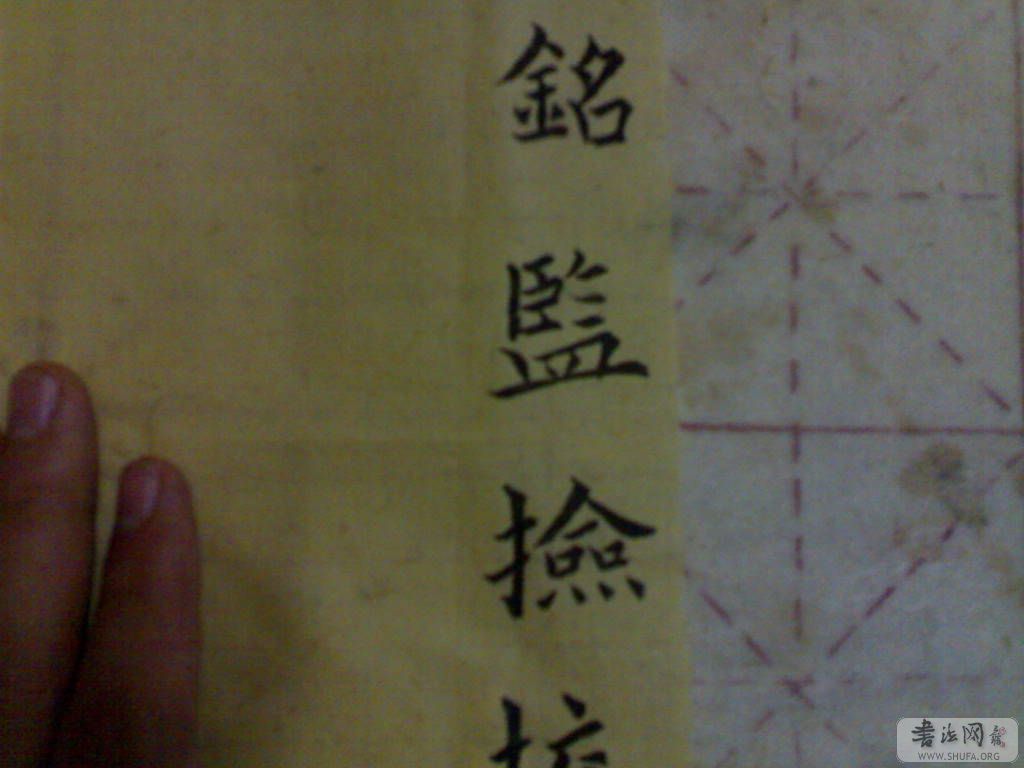 銘監撿
書法网
WWW.SHUFA.ORG